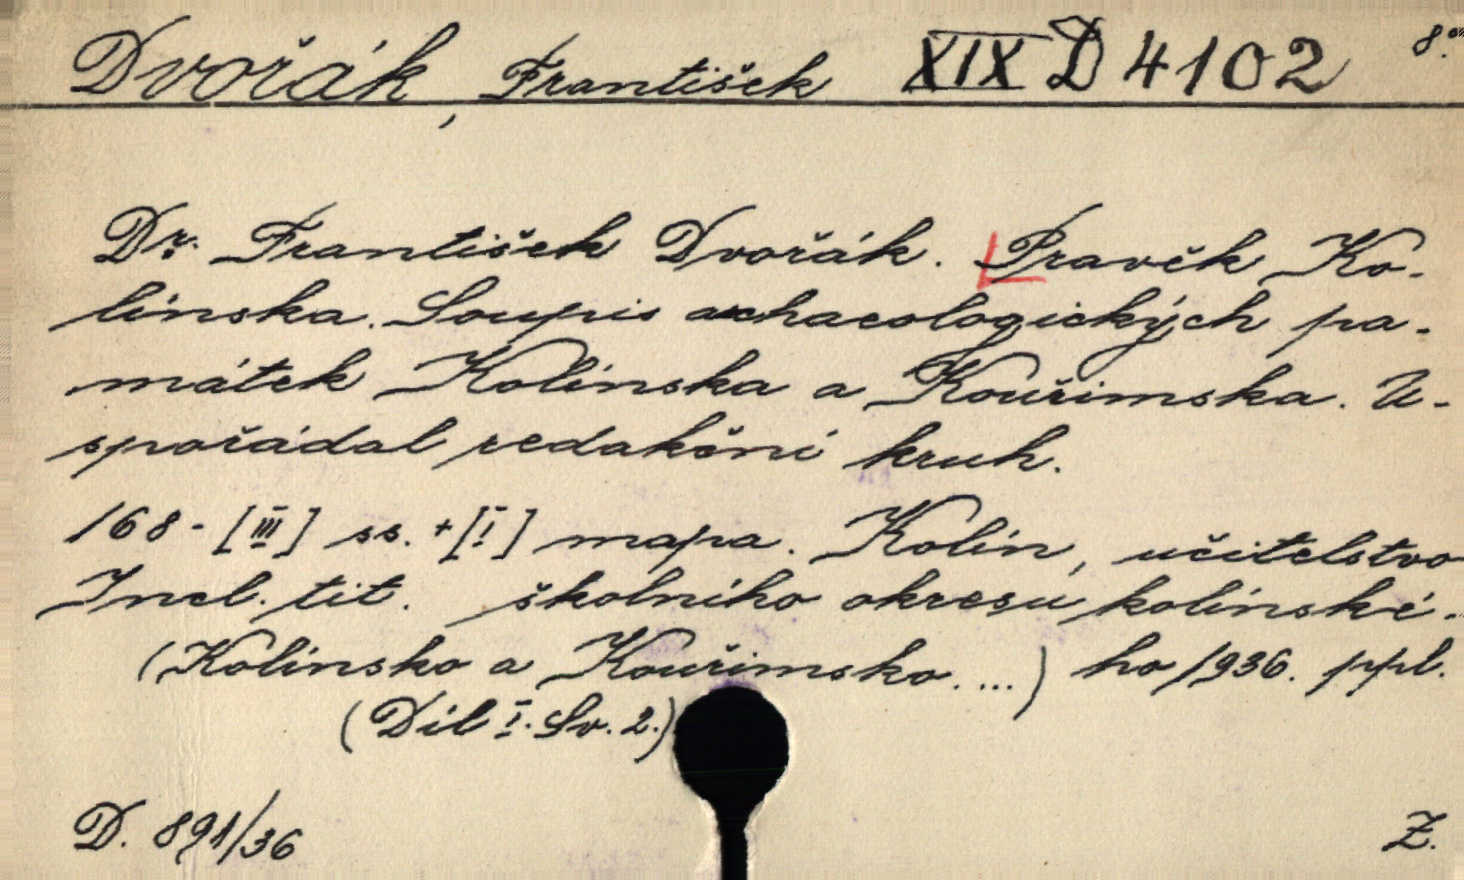 Dvořák, František XIX D 4102 8°
Dr. František Dvořák. Pravěk Ko-
línska. Soupis archaeologických pa-
mátek Kolínska a Kouřimska. U-
spořádal redakční kruh.
168-[III] ss. +[I] mapa. Kolín, učitelstvo
Incl. tit. školního okresu kolínské-
(Kolínsko a Kouřimsko. ...) ho 1936. ppl.
(Díl I. Sv. 2.)
D. 891/36 Z.